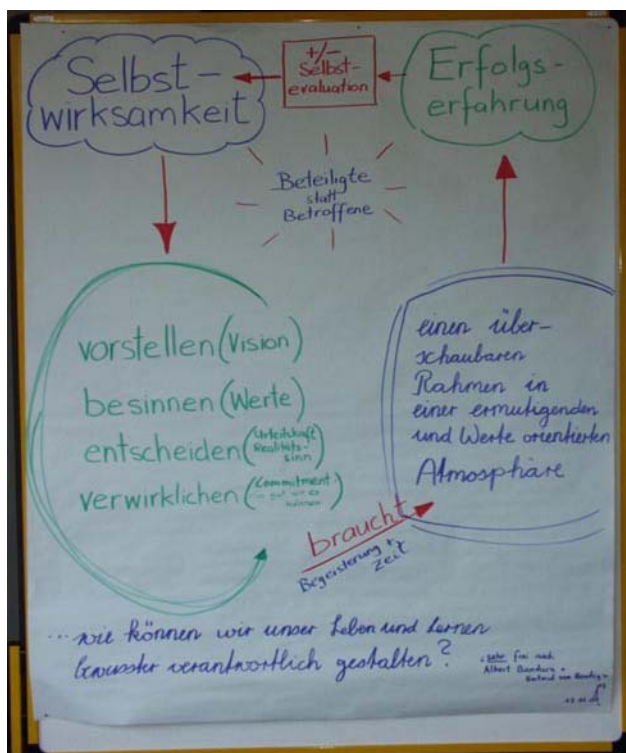 Selbst-
wirksamkeit
+/-
Selbst-
evaluation
Erfolgs-
erfahrung
Beteiligte
statt
Betroffene
vorstellen (Vision)
besinnen (Werte)
entscheiden (Urteilskraft
Realitäts-
sinn)
verwirklichen (Commitment
können)
einen über-
schaubaren
Rahmen in
einer ermutigenden
und Werte orientierten
Atmosphäre
braucht
Begeisterung +
Zeit
... wie können wir unser Leben und Lernen
bewusster verantwortlich gestalten?
sehr frei nach
Albert Bandura +